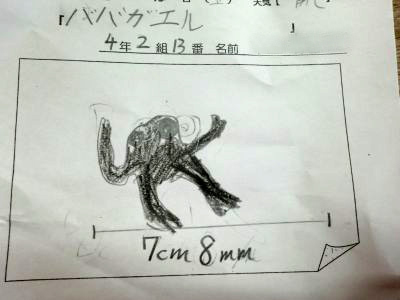 『ババガエル』
4年2組13番 名前
7cm 8mm